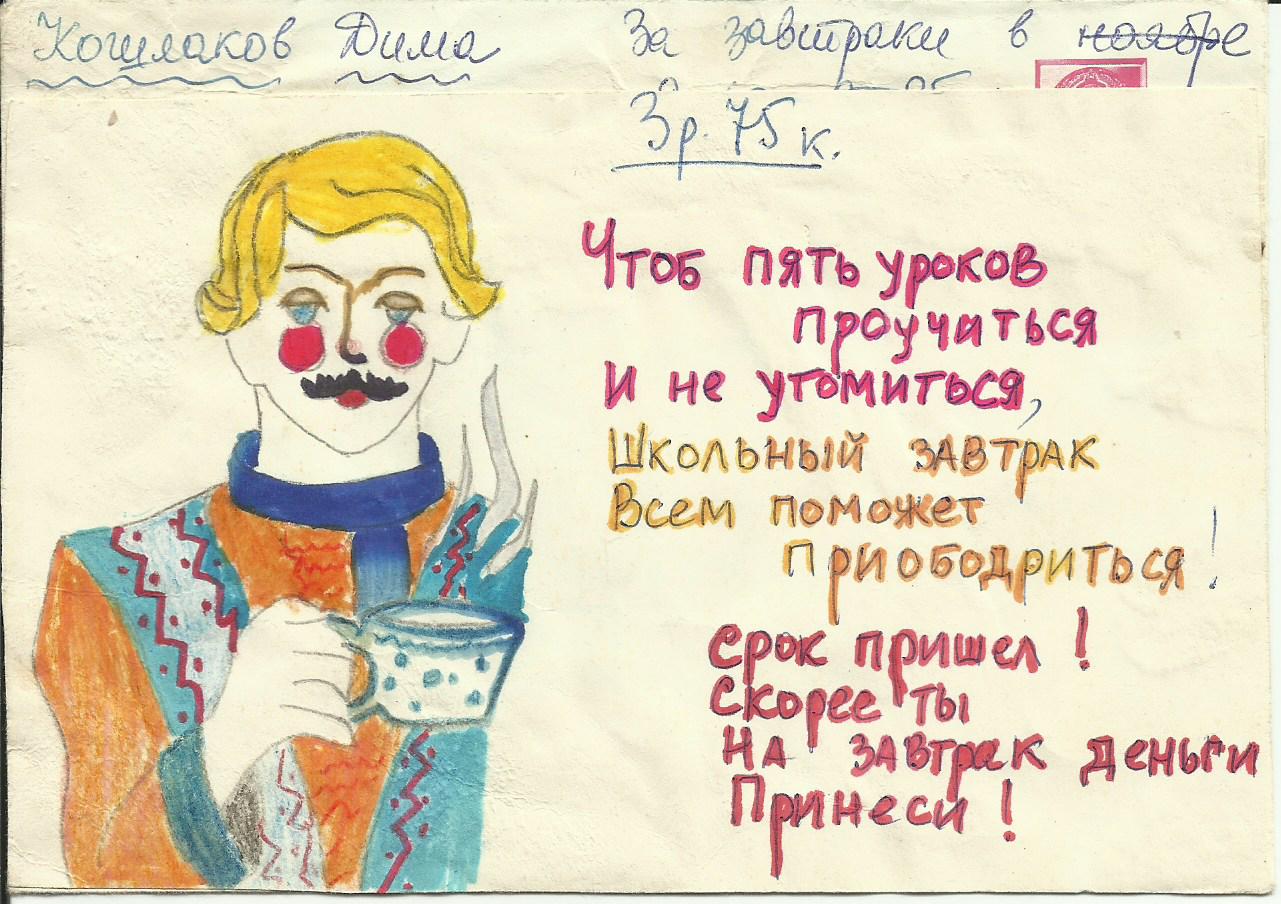 Кошлаков Дима
За завтраки в ноябре
3р. 75 к.
Чтоб пять уроков
проучиться
И не утомиться,
Школьный завтрак
Всем поможет
Приободриться!
Срок пришел!
Скорее ты
На завтрак деньги
Принеси!